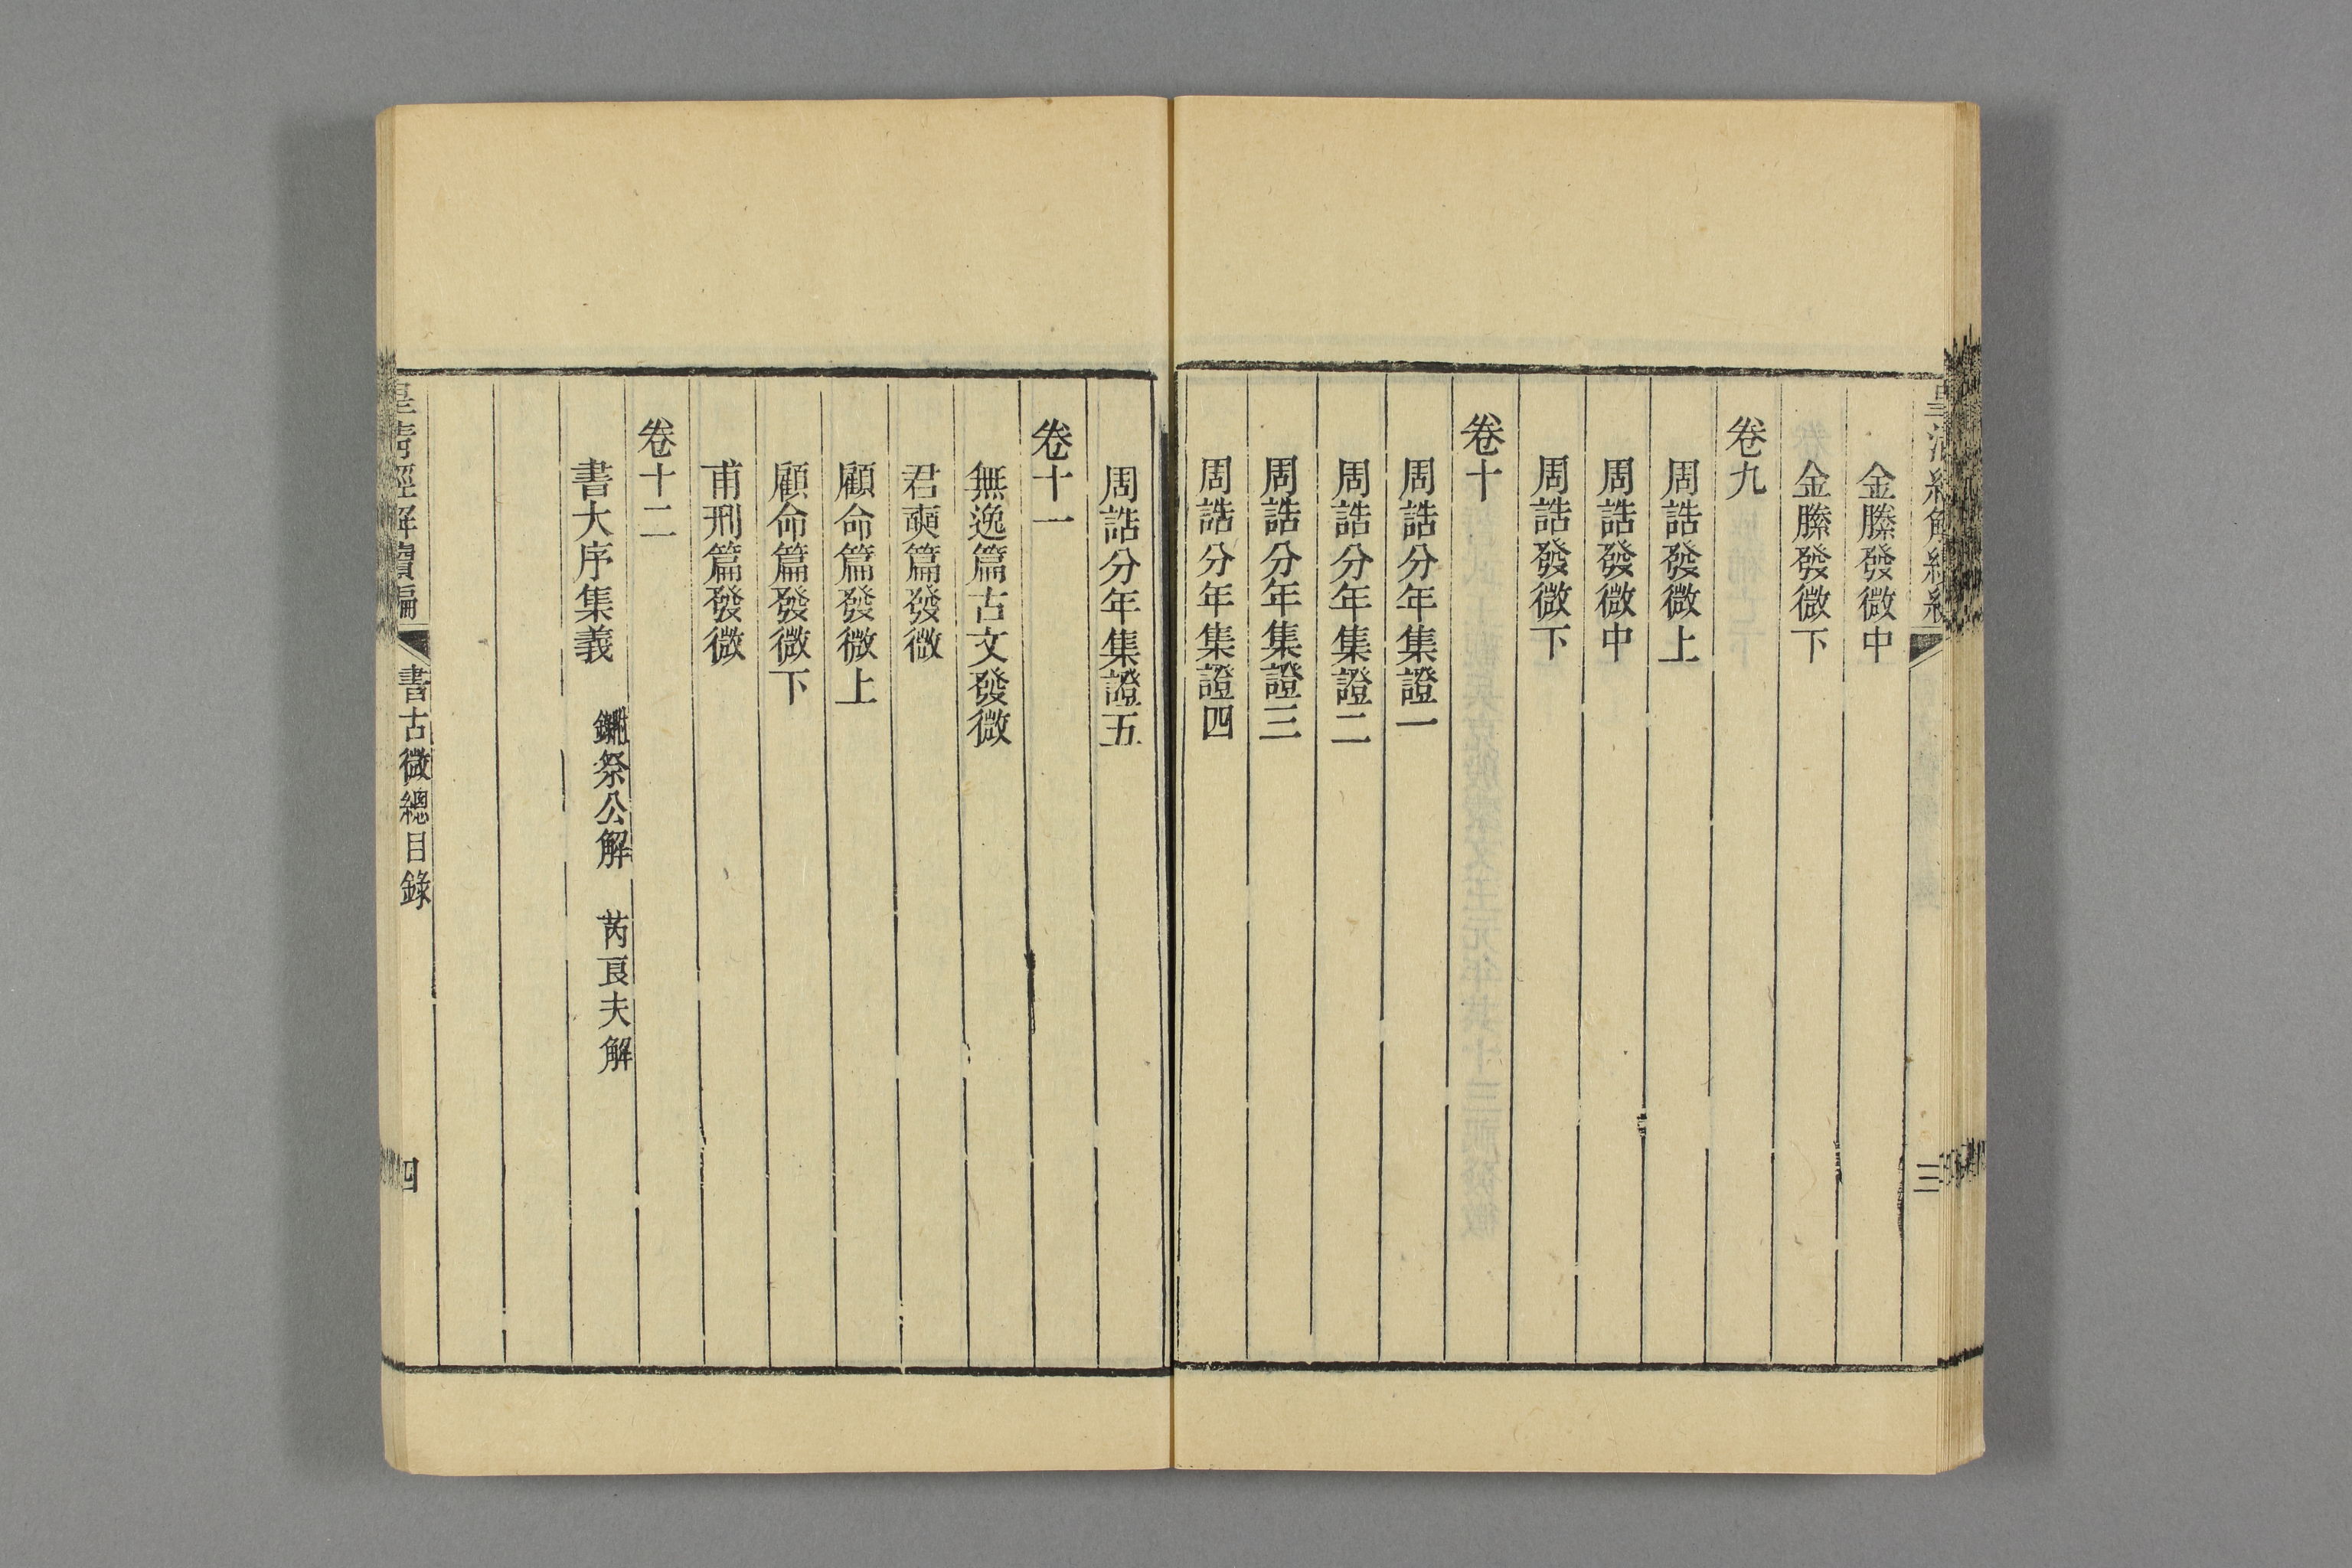 金縢發微中
金縢發微下
卷九
周誥發微上
周誥發微中
周誥發微下
卷十
周誥分年集證一
周誥分年集證二
周誥分年集證三
周誥分年集證四
三
周誥分年集證五
卷十一
無逸篇古文發微
君奭篇發微
顧命篇發微上
顧命篇發微下
甫刑篇發微
卷十二
書大序集義 附 祭公解 芮良夫解
皇清經解續編 書古微總目錄 四